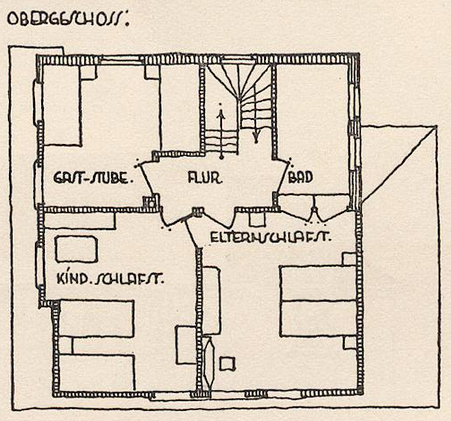 OBERGESCHOSS:
GAST-STUBE. FLUR. BAD
ELTERNSCHLAFST.
KIND. SCHLAFST.